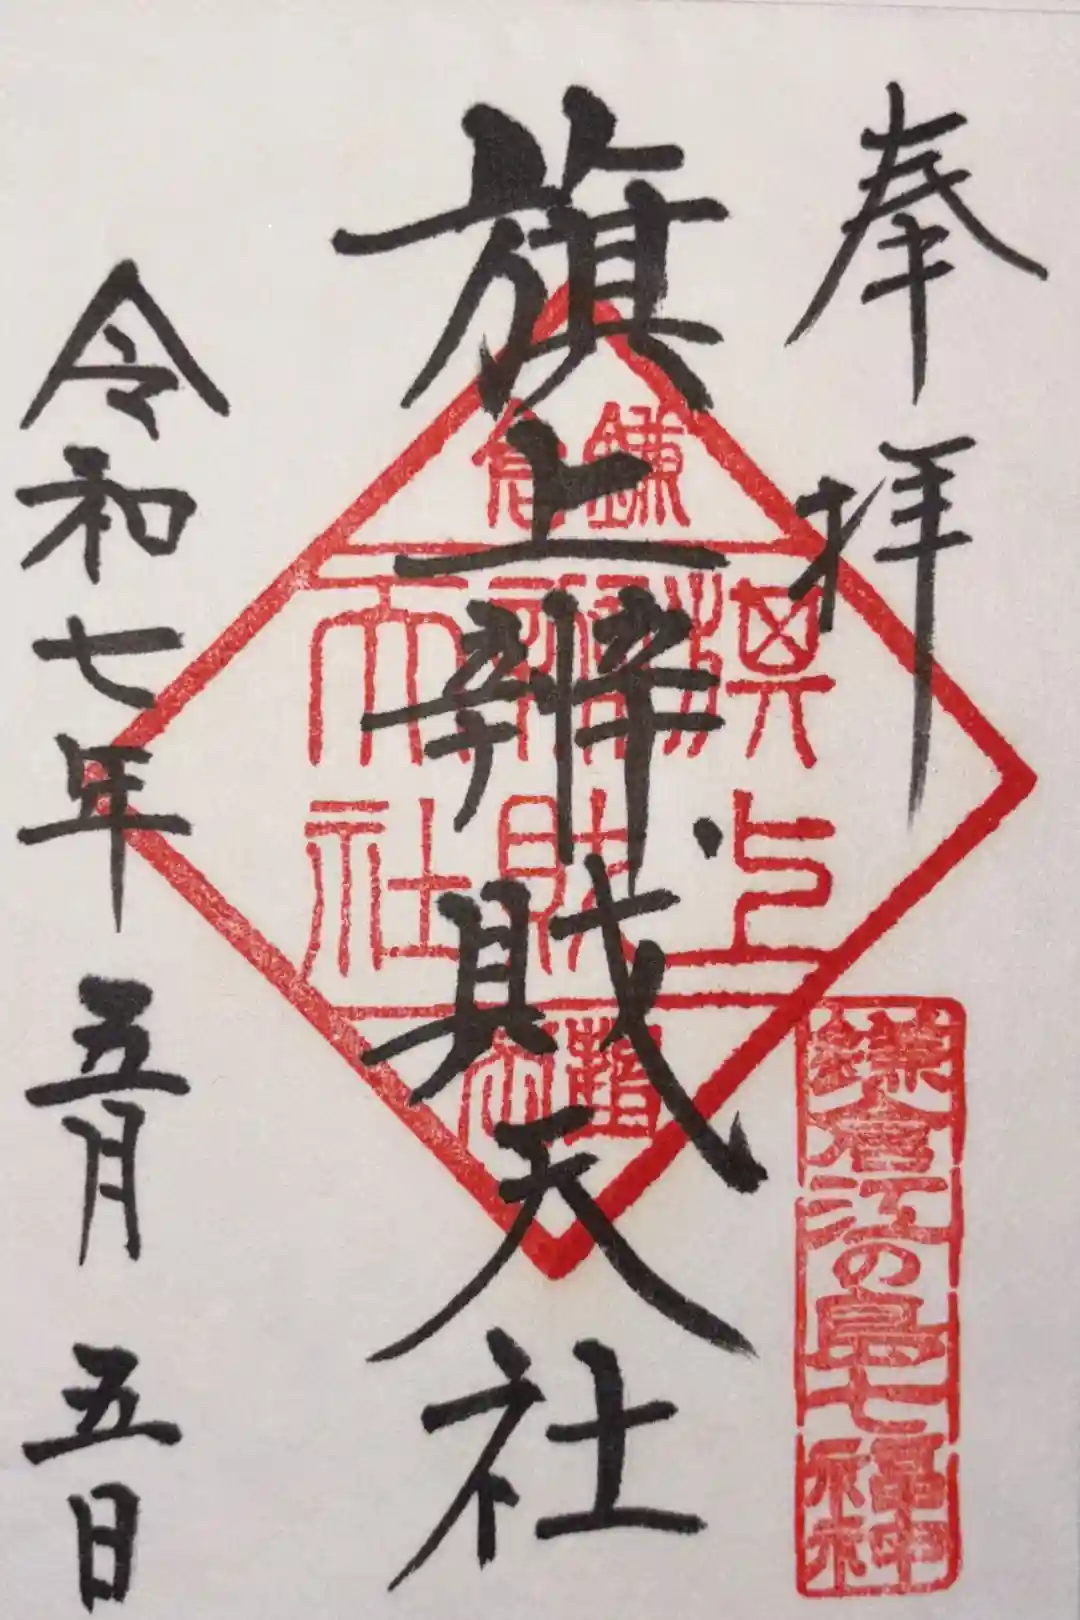 奉拝
鎌倉江の島七福神
旗上辨財天社
鎌倉
旗上
辨財
天社
令和七年五月五日